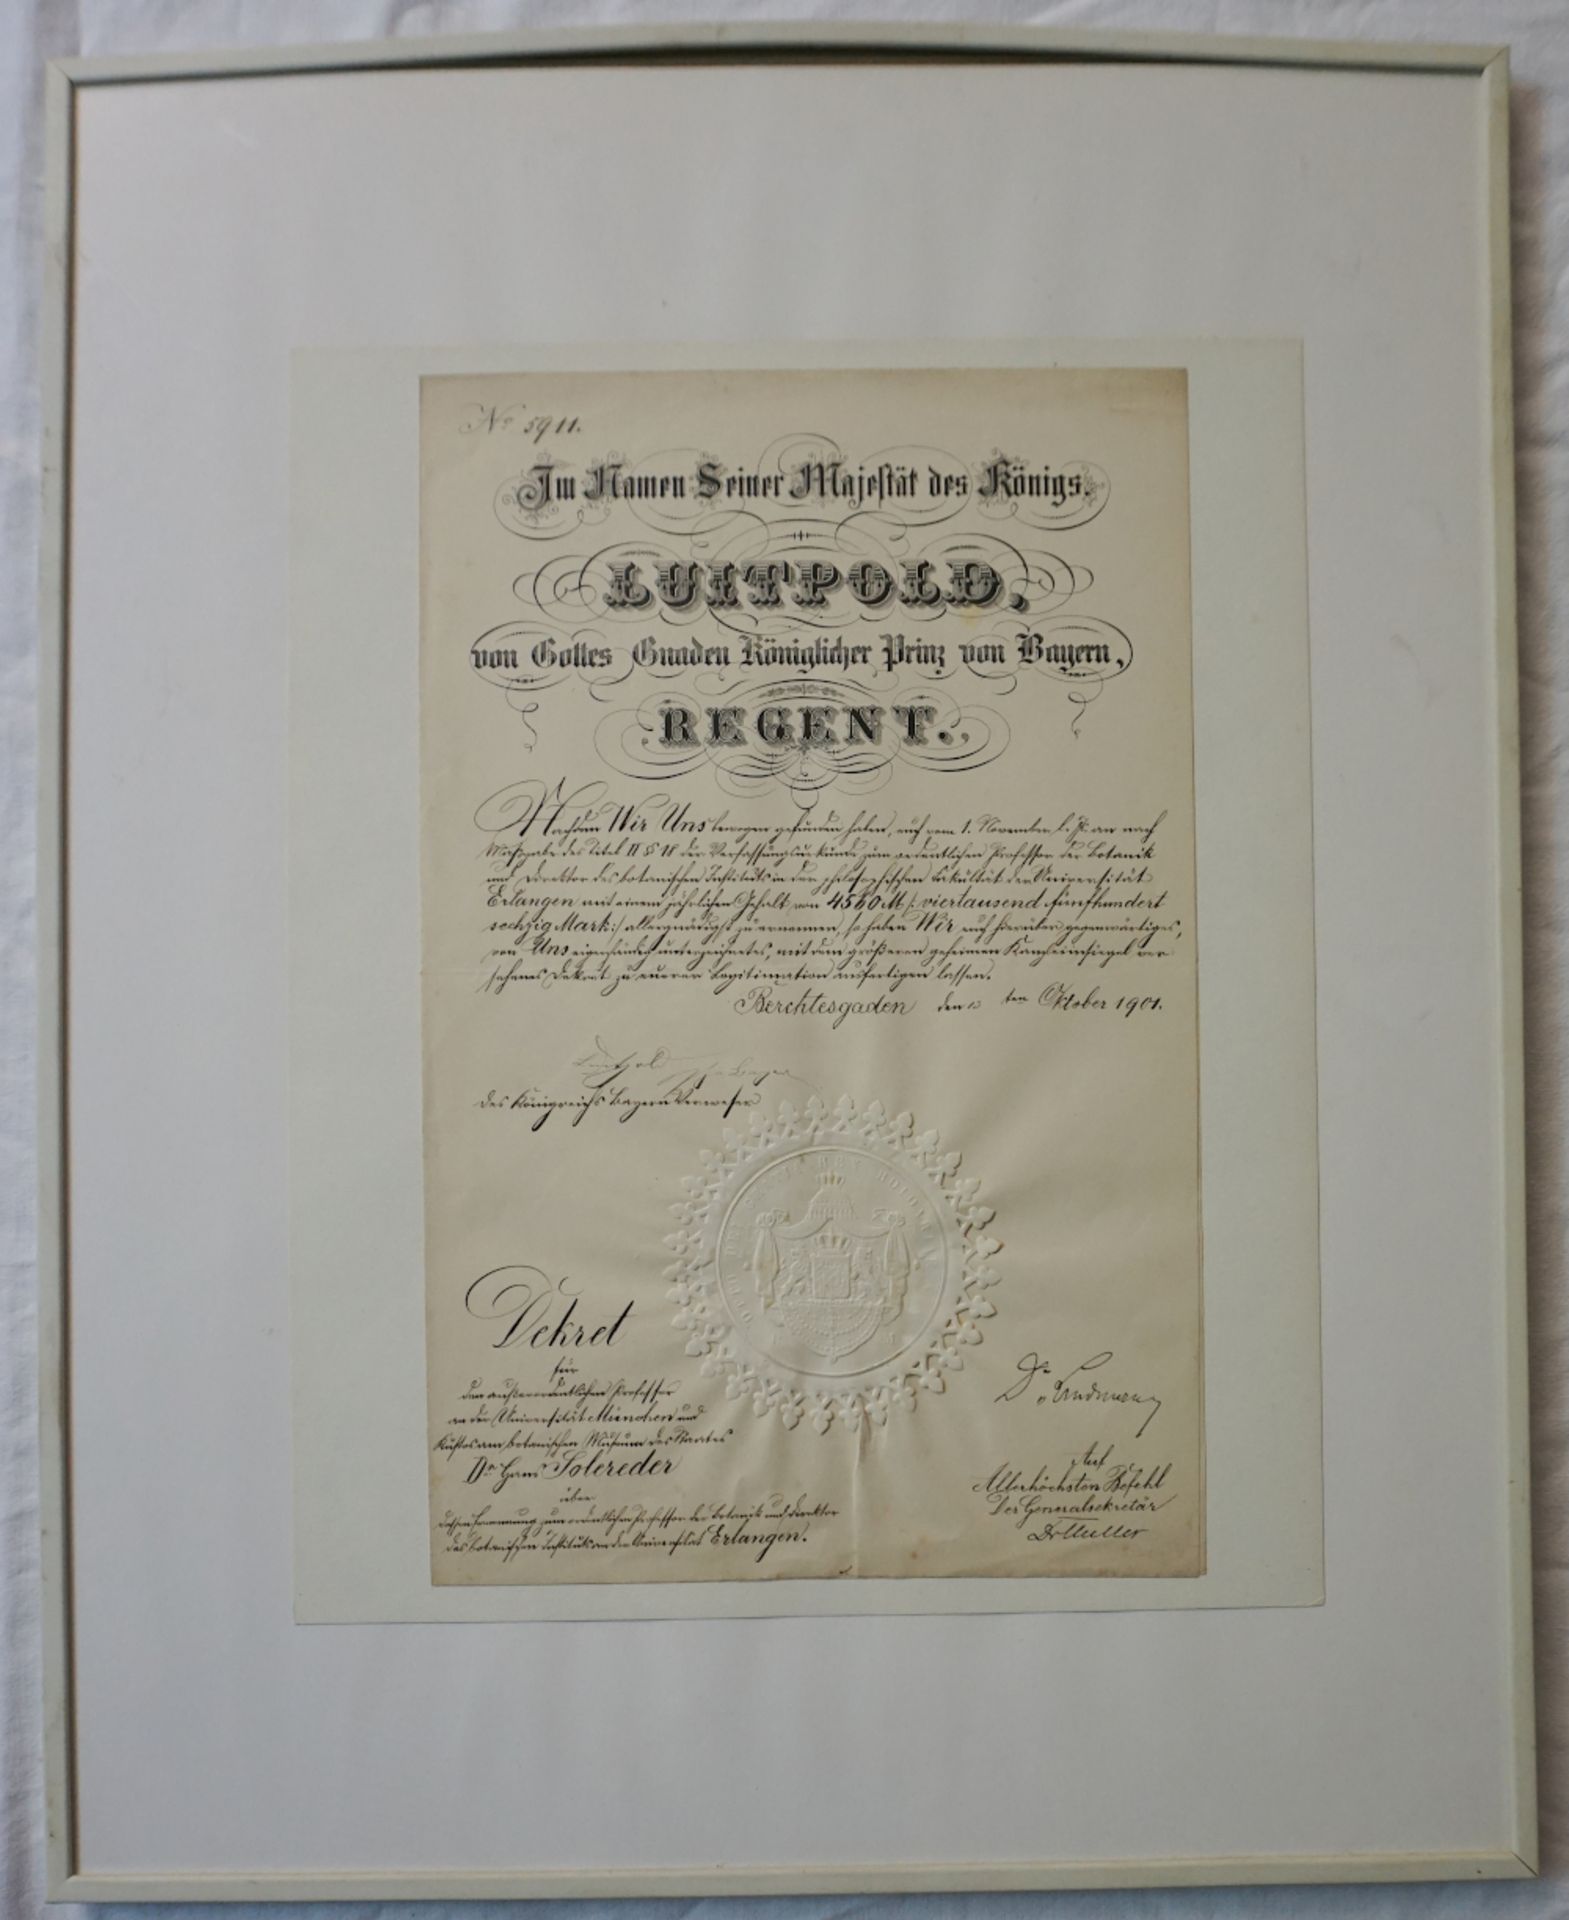 No 5911.
Im Namen Seiner Majestät des Königs.
LUITPOLD,
von Gottes Gnaden Königlicher Prinz von Bayern,
REGENT.
Nachdem Wir Uns bewogen gefunden haben, euch vom 1. November l. Js. an nach
Maßgabe des Titel II § 18 der Verfassungsurkunde zum ordentlichen Professor der Botanik
und Direktor des botanischen Instituts in der philosophischen Fakultät der Universität
Erlangen mit einem jährlichen Gehalt von 4560 M /: viertausend fünfhundert
sechzig Mark :/ allergnädigst zu ernennen, so haben Wir euch hierüber gegenwärtiges,
von Uns eigenhändig unterzeichnetes, mit dem größeren geheimen Kanzleiinsiegel ver
sehenes Dekret zu eurer Legitimation ausfertigen lassen.
Berchtesgaden den ten Oktober 1901.
Luitpold
des Königreichs Bayern Verweser
Dekret
für
den außerordentlichen Professor
an der Universität München und
Kustos am botanischen Museum des Staates
Dr. Hans Solereder
über
dessen Ernennung zum ordentlichen Professor der Botanik und Direktor
des botanischen Instituts an der Universität Erlangen.
Dr. v. Landmann
Auf
Allerhöchsten Befehl
Der Generalsekretär
Dr Müller